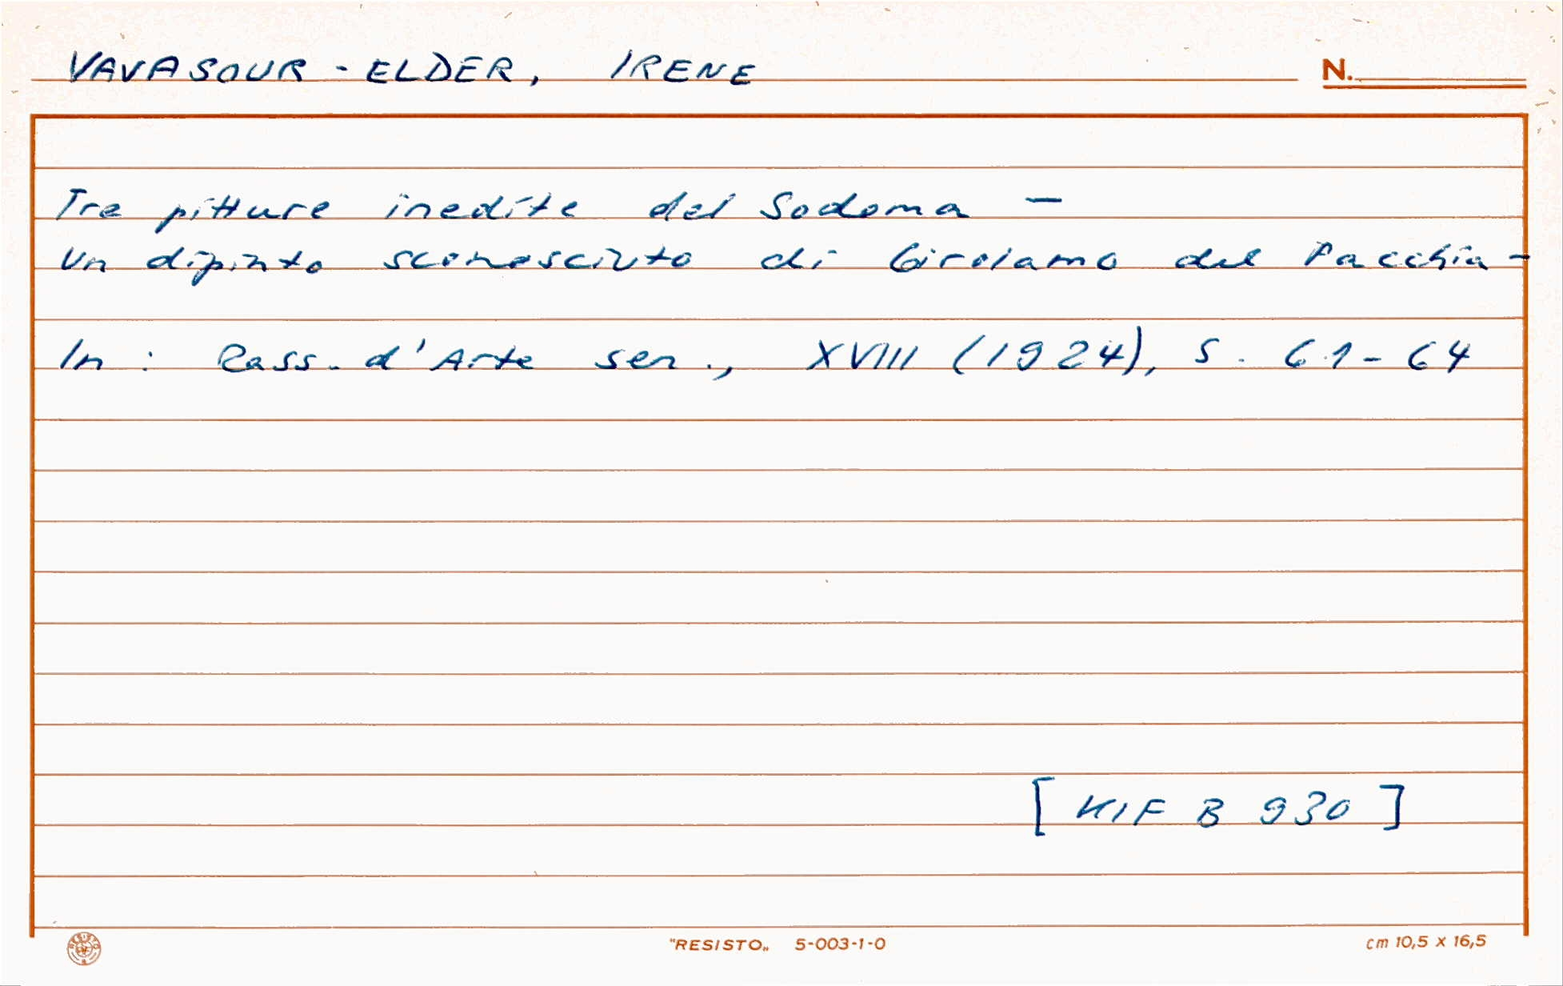 VAVASOUR-ELDER, IRENE
N.
Tre pitture inedite del Sodoma -
Un dipinto sconosciuto di Girolamo del Pacchia -
In: Rass. d'Arte sen., XVIII (1924), S. 61-64
[KIF B 930]
"RESISTO„ 5-003-1-0
cm 10,5 x 16,5